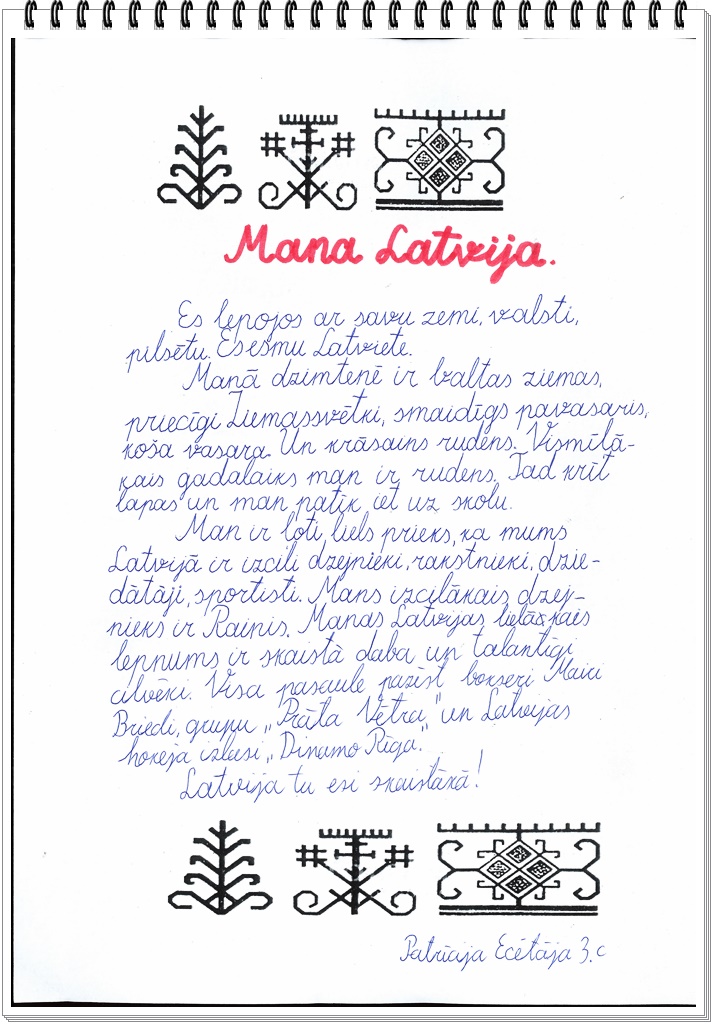 Mana Latvija.
Es lepojos ar savu zemi, valsti,
pilsētu. Es esmu Latviete.
Manā dzimtenē ir baltas ziemas,
priecīgi Ziemassvētki, smaidīgs pavasaris,
koša vasara. Un krāsains rudens. Vismīļā-
kais gadalaiks man ir rudens. Tad krīt
lapas un man patīk iet uz skolu.
Man ir ļoti liels prieks, ka mums
Latvijā ir izcili dzejnieki, rakstnieki, dzie-
dātāji, sportisti. Mans izcilākais dzej-
nieks ir Rainis. Manas Latvijas lielākais
lepnums ir skaistā daba un talantīgi
cilvēki. Visa pasaule pazīst bokseri Mairi
Briedi, grupu „Prāta Vētra" un Latvijas
hokeja izlasi „Dinamo Rīga".
Latvija tu esi skaistākā!
Patrīcija Ecētāja 3.c